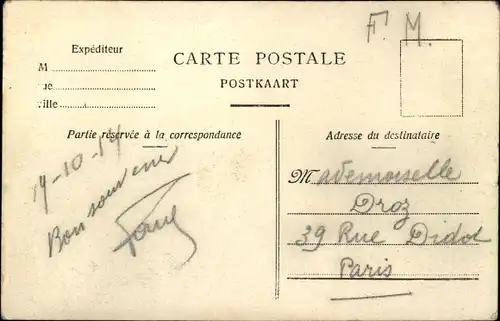 F. M.
Expéditeur
M
ue
ville
CARTE POSTALE
POSTKAART
Partie réservée à la correspondance
Adresse du destinataire
19-10-14
Bon souvenir
Mademoiselle
Droz
39 Rue Didot
Paris